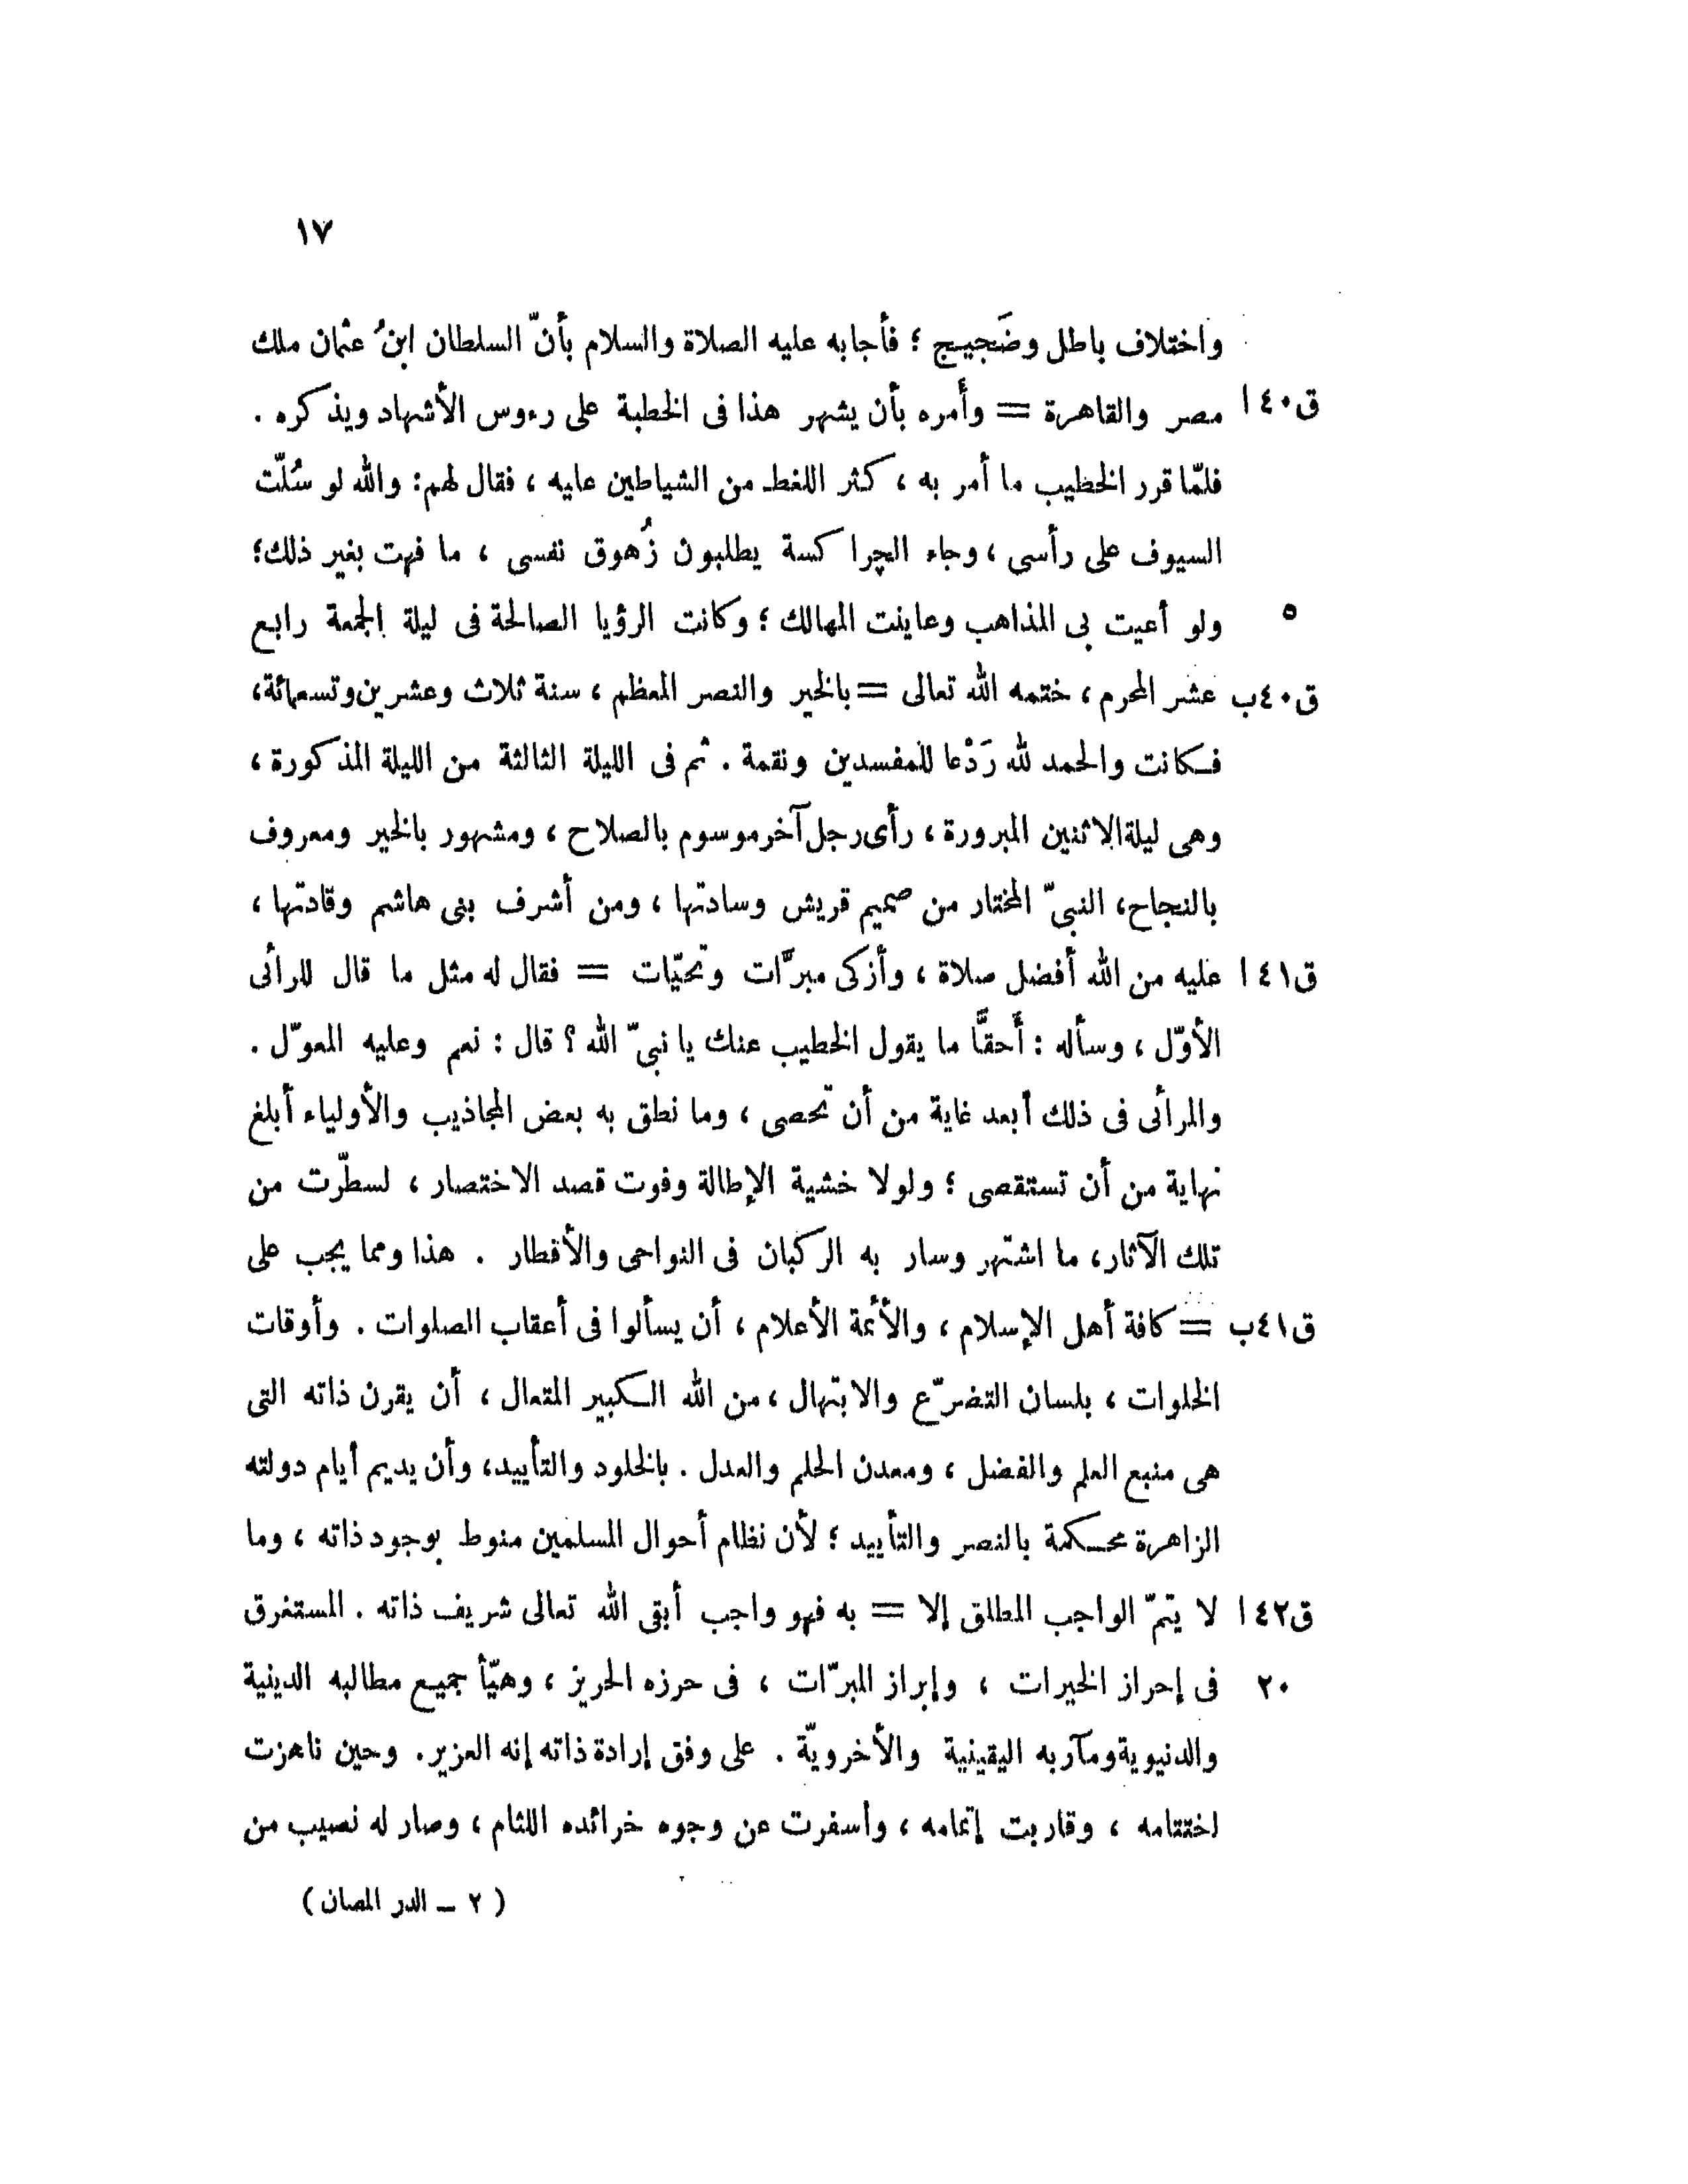 ١٧
واختلاف باطل وضَجيج ؛ فأجابه عليه الصلاة والسلام بأنّ السلطان ابنُ عثمان ملك
ق٤٠ا مصر والقاهرة = وأَمره بأن يشهر هذا فى الخطبة على رءوس الأشهاد ويذكره .
فلمّا قرر الخطيب ما أمر به ، كثر اللغط من الشياطين عليه ، فقال لهم: والله لو سُلّت
السيوف على رأسى ، وجاء الچراكسة يطلبون زُهوق نفسى ، ما فهت بغير ذلك؛
٥ ولو أعيت بى المذاهب وعاينت المهالك ؛ وكانت الرؤيا الصالحة فى ليلة الجمعة رابع
ق٤٠ب عشر المحرم ، ختمه الله تعالى = بالخير والنصر المعظم ، سنة ثلاث وعشرين وتسعمائة،
فكانت والحمد لله رَدْعا للمفسدين ونقمة . ثم فى الليلة الثالثة من الليلة المذكورة ،
وهى ليلة الاثنين المبرورة ، رأى رجل آخر موسوم بالصلاح ، ومشهور بالخير ومعروف
بالنجاح، النبىّ المختار من صميم قريش وسادتها ، ومن أشرف بنى هاشم وقادتها ،
ق٤١ا عليه من الله أفضل صلاة ، وأزكى مبرّات وتحيّات = فقال له مثل ما قال للرائى
الأوّل ، وسأله : أَحقًّا ما يقول الخطيب عنك يا نبىّ الله ؟ قال : نعم وعليه المعوّل .
والمرائى فى ذلك أبعد غاية من أن تحصى ، وما نطق به بعض المجاذيب والأولياء أبلغ
نهاية من أن تستقصى ؛ ولولا خشية الإطالة وفوت قصد الاختصار ، لسطّرت من
تلك الآثار، ما اشتهر وسار به الركبان فى النواحى والأقطار . هذا ومما يجب على
ق٤١ب = كافة أهل الإسلام ، والأئمة الأعلام ، أن يسألوا فى أعقاب الصلوات . وأوقات
الخلوات ، بلسان التضرّع والابتهال ، من الله الكبير المتعال ، أن يقرن ذاته التى
هى منبع العلم والفضل ، ومعدن الحلم والعدل . بالخلود والتأييد، وأن يديم أيام دولته
الزاهرة محكمة بالنصر والتأييد ؛ لأن نظام أحوال المسلمين منوط بوجود ذاته ، وما
ق٤٢ا لا يتمّ الواجب المطلق إلا = به فهو واجب أبقى الله تعالى شريف ذاته . المستغرق
٢٠ فى إحراز الخيرات ، وإبراز المبرّات ، فى حرزه الحريز ، وهيّأ جميع مطالبه الدينية
والدنيوية ومآربه اليقينية والأخرويّة . على وفق إرادة ذاته إنه العزيز. وحين ناهزت
اختتامه ، وقاربت إتمامه ، وأسفرت عن وجوه خرائده اللثام ، وصار له نصيب من
( ٢ – الدر المصان )